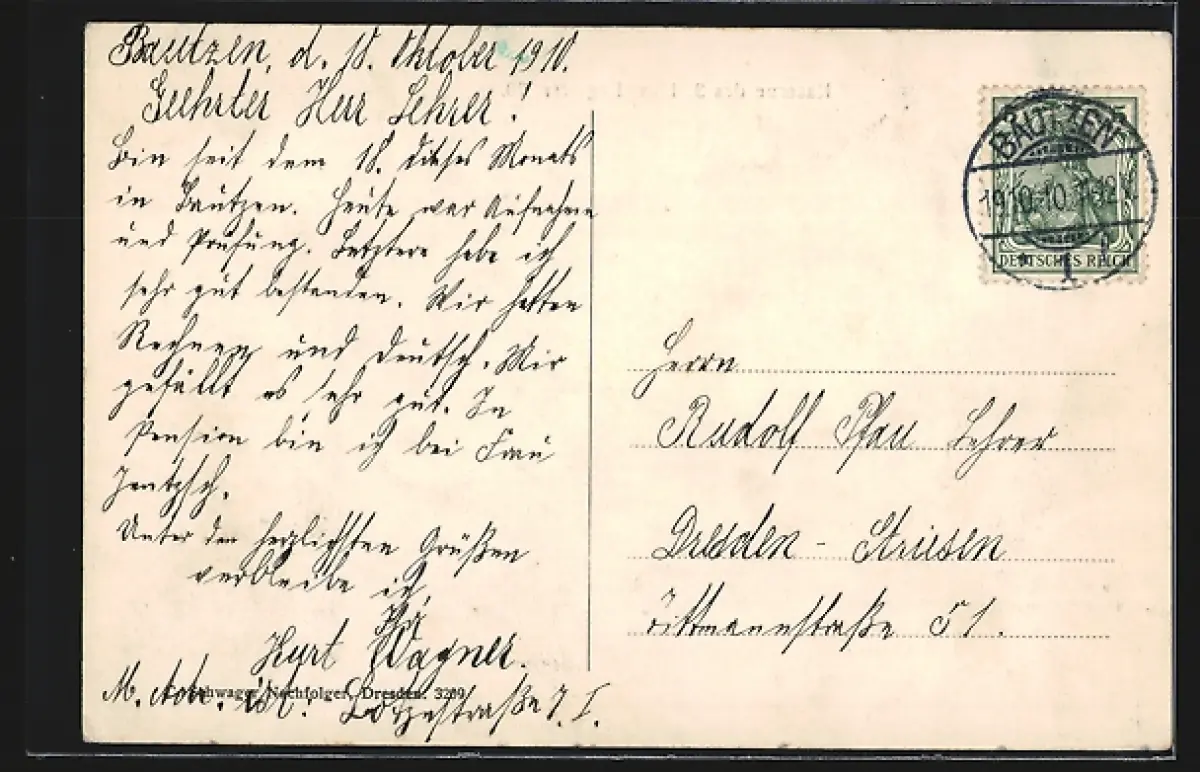 Bautzen, d. 18. Oktober 1910.
Geehrter Herr Lehrer!
Bin seit dem 18. dieses Monats
in Bautzen. Heute war Aufnahme
und Prüfung. Letztere habe ich
sehr gut bestanden. Wir hatten
Rechnen und Deutsch. Mir
gefällt es sehr gut. In
Pension bin ich bei Frau
Jentzsch.
Unter den herzlichsten Grüßen
verbleibe ich
Ihr
Kurt Wagner.
M. Adr. ist: straße 7. I.
Nachfolger, Dresden. 3289
DEUTSCHES REICH
BAUTZEN
19.10.10.
1
Herrn
Rudolf Pfau Lehrer
Dresden - Striesen
Wittmannstraße 51.